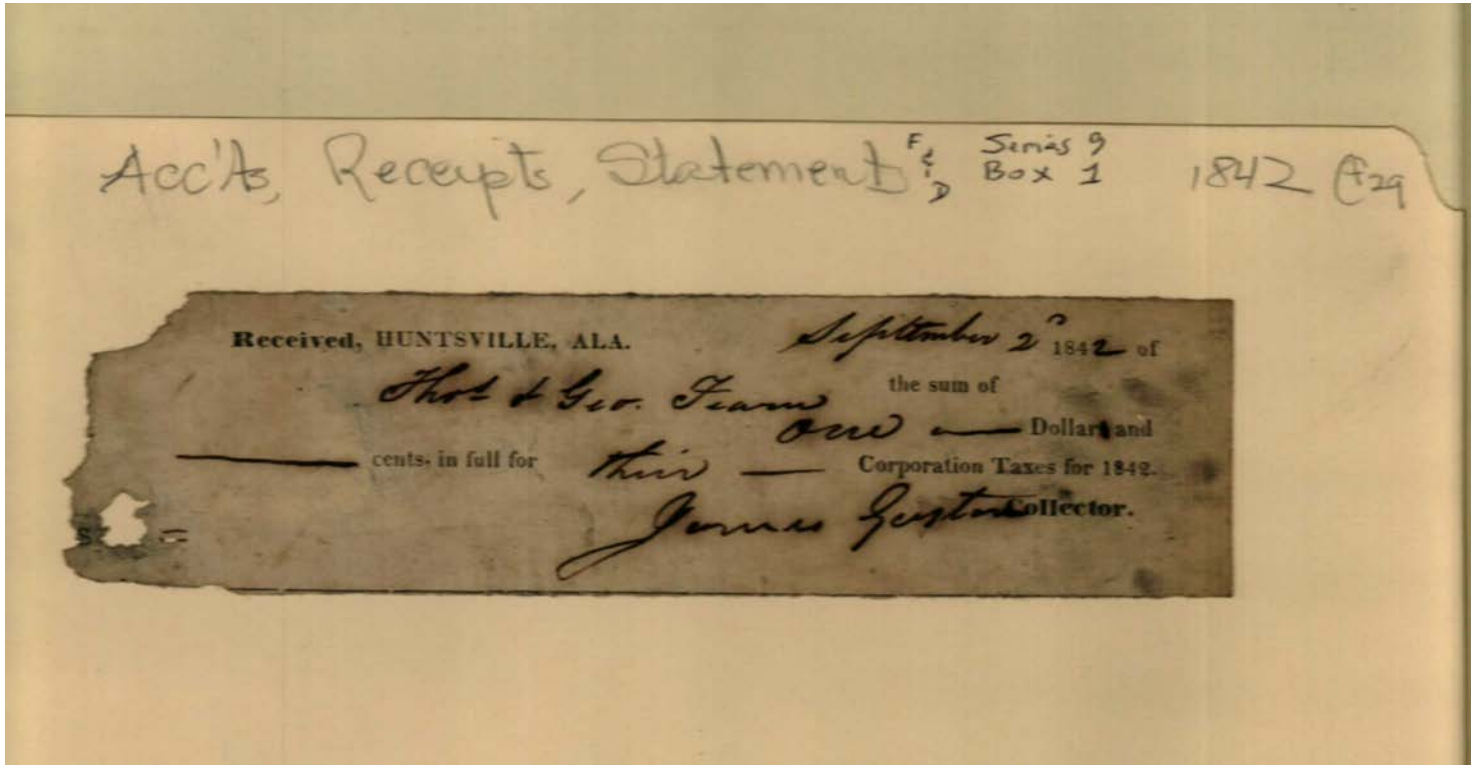 Acc'ts, Receipts, Statement F & D Series 9 Box 1 1842 f29
Received, HUNTSVILLE, ALA. September 2d 1842 of
Thos & Geo. Fearn the sum of
One — Dollars and
— cents, in full for their — Corporation Taxes for 1842.
James Collector.
$ =